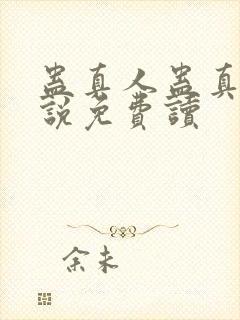 蛊真人蛊真
說免費讀
余未